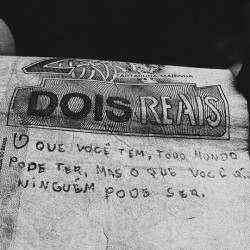 TARTARUGA MARINHA
DOIS REAIS
O QUE VOCÊ TEM, TODO MUNDO
PODE TER, MAS O QUE VOCÊ É...
NINGUÉM PODE SER.